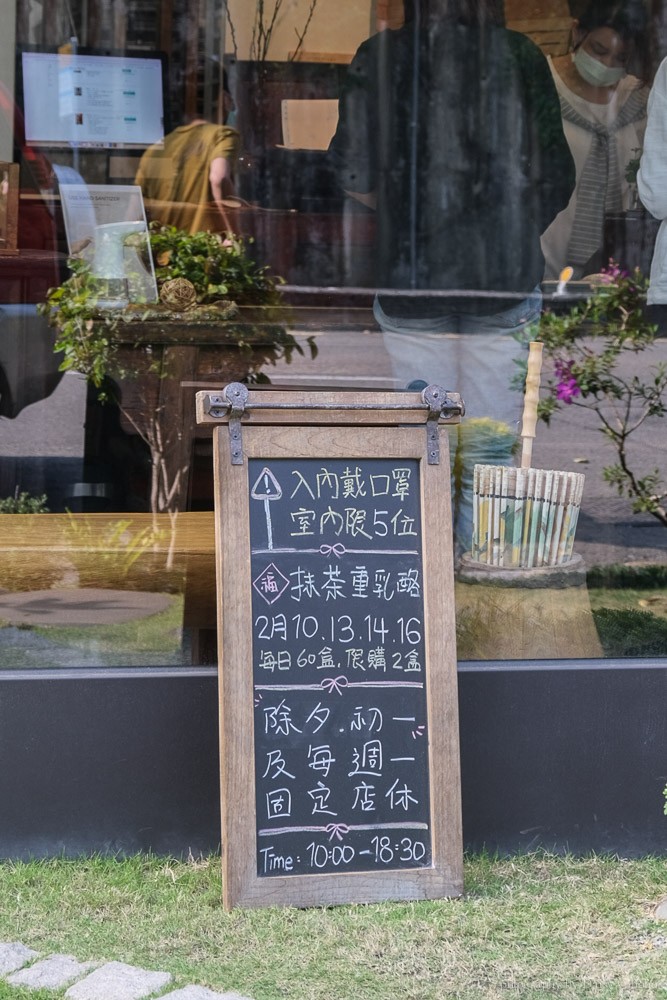 入內戴口罩
室內限5位
福 抹茶重乳酪
2月10.13.14.16
每日60盒.限購2盒
除夕.初一
及每週一
固定店休
Time: 10:00-18:30